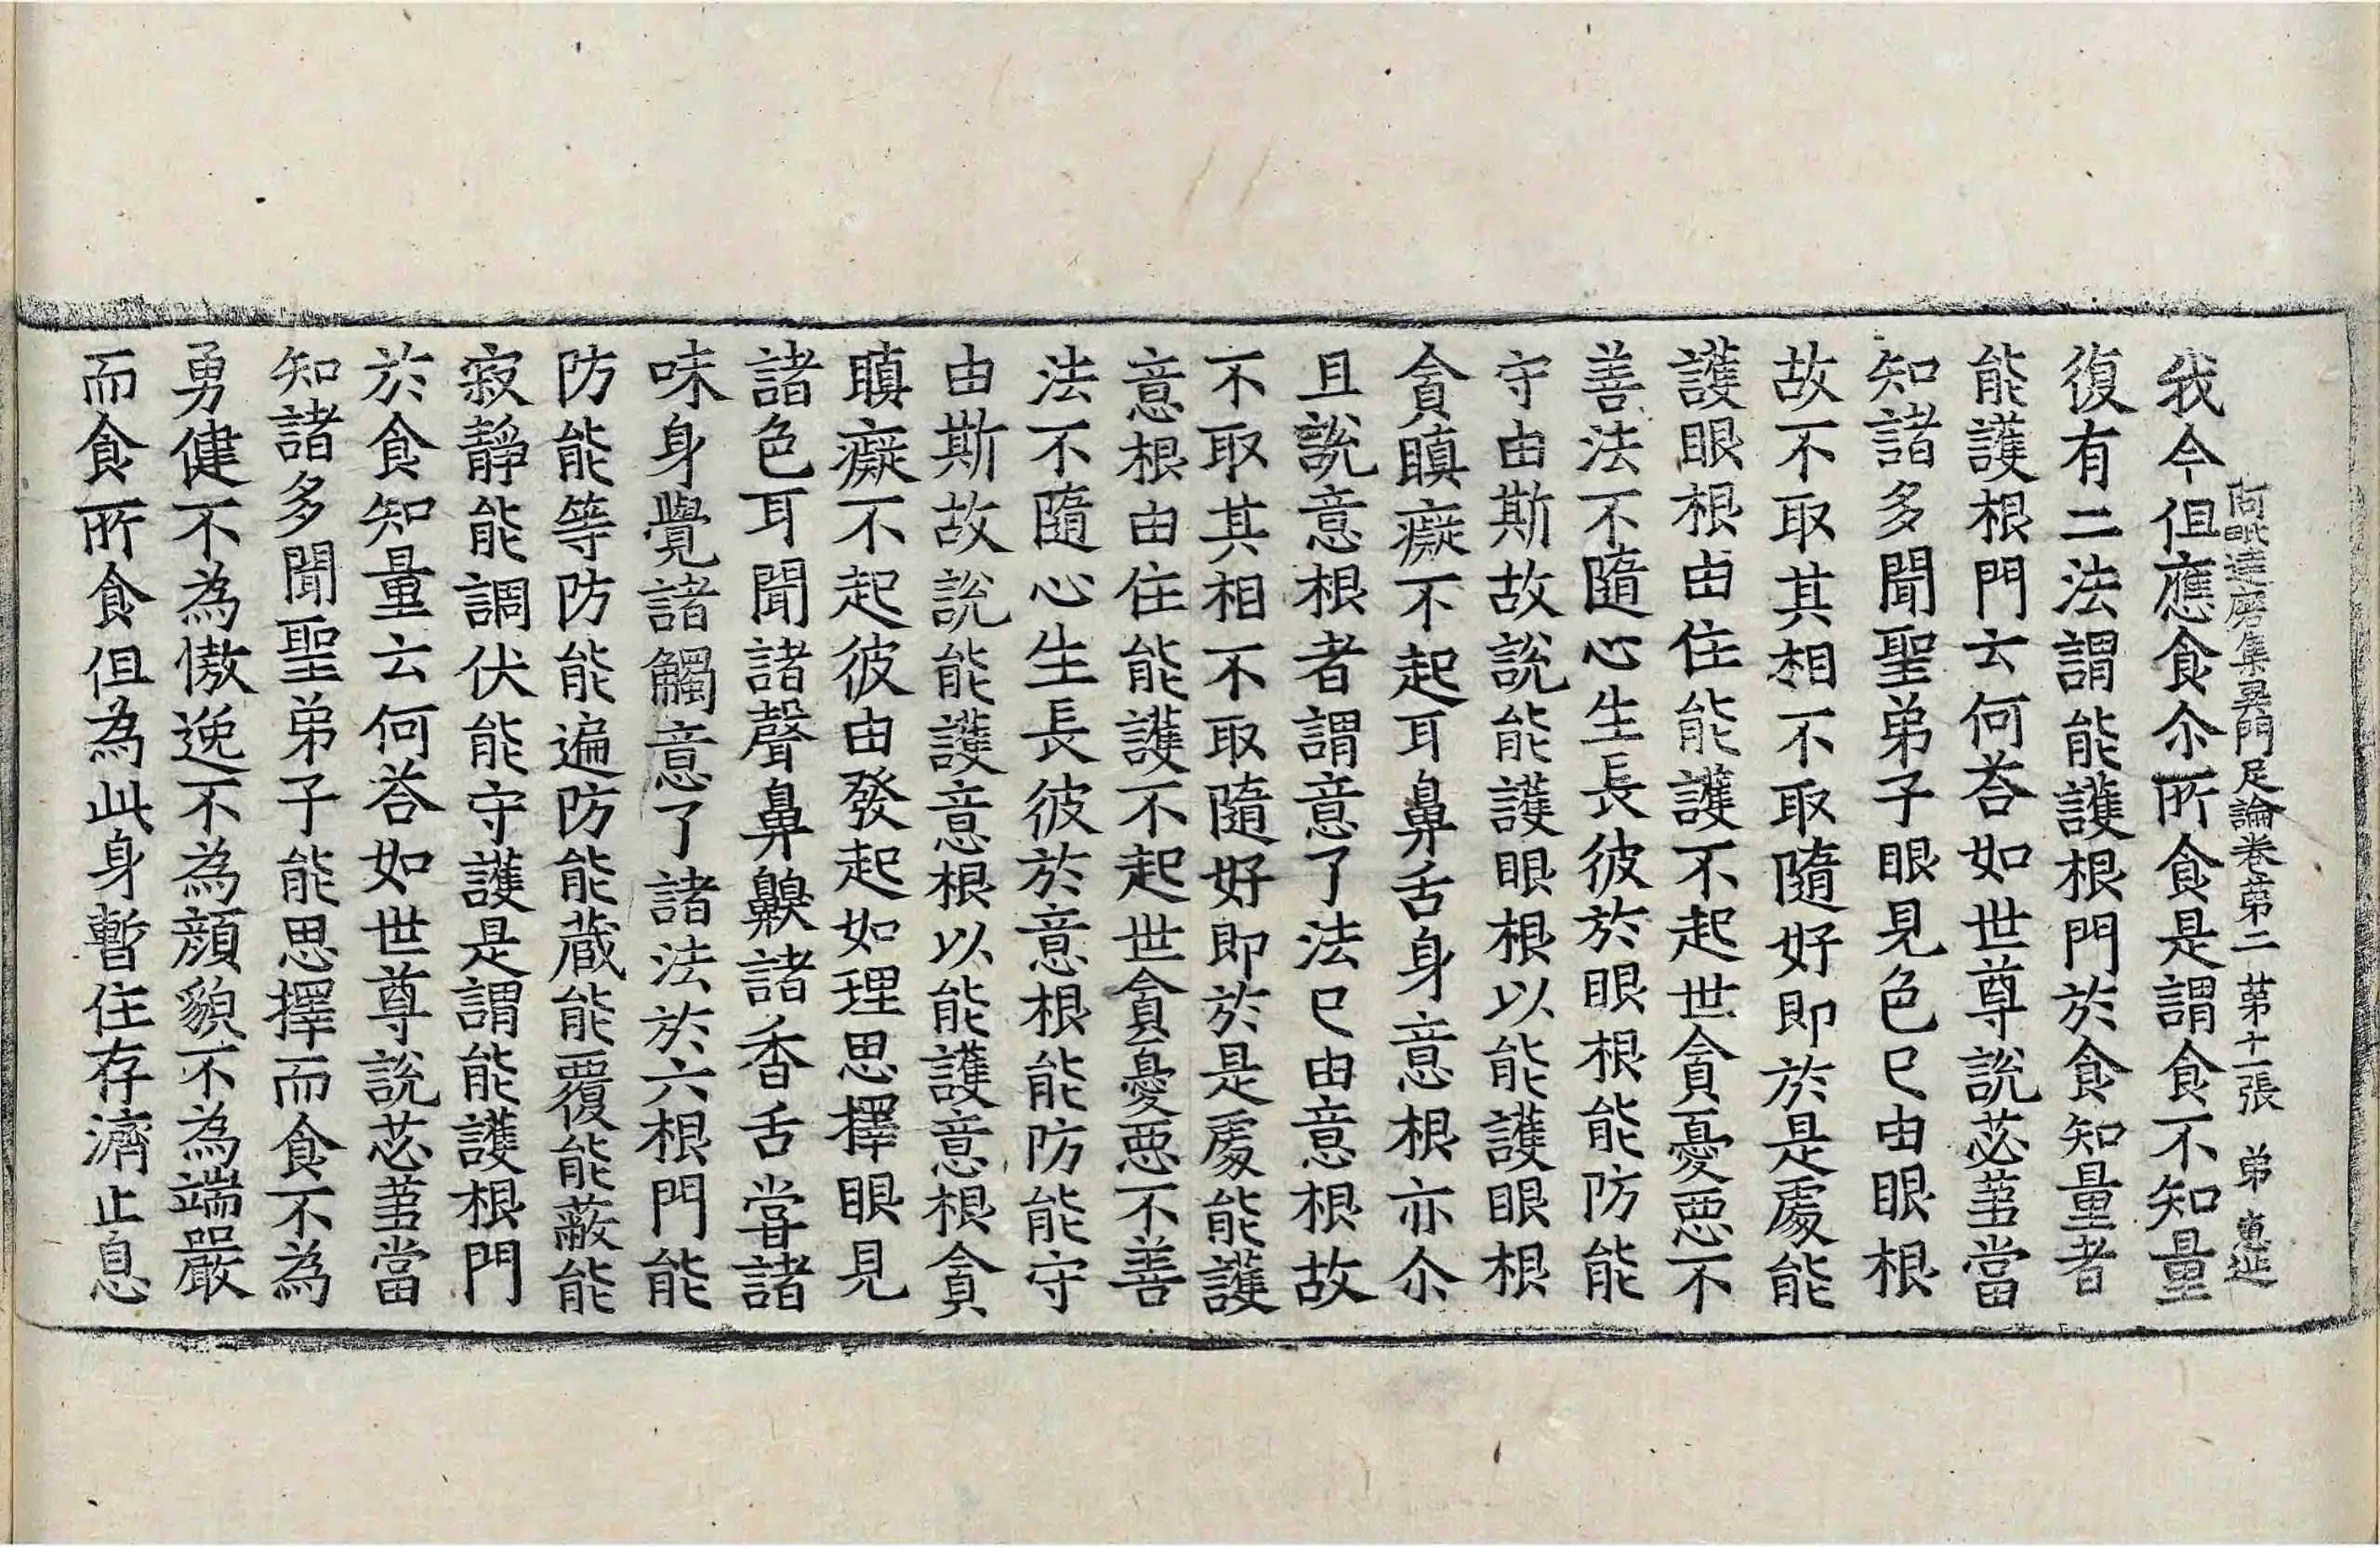 阿毗達磨集異門足論卷第二 第十一張 弟
我今但應食尒所食是謂食不知量
復有二法謂能護根門於食知量者
能護根門云何荅如世尊說苾蒭當
知諸多聞聖弟子眼見色已由眼根
故不取其相不取隨好即於是處能
護眼根由住能護不起世貪憂惡不
善法不隨心生長彼於眼根能防能
守由斯故說能護眼根以能護眼根
貪瞋癡不起耳鼻舌身意根亦尒
且說意根者謂意了法已由意根故
不取其相不取隨好即於是處能護
意根由住能護不起世貪憂惡不善
法不隨心生長彼於意根能防能守
由斯故說能護意根以能護意根貪
瞋癡不起彼由發起如理思擇眼見
諸色耳聞諸聲鼻齅諸香舌甞諸
味身覺諸觸意了諸法於六根門能
防能等防能遍防能藏能覆能蔽能
寂靜能調伏能守護是謂能護根門
於食知量云何荅如世尊說苾蒭當
知諸多聞聖弟子能思擇而食不為
勇健不為慠逸不為顏貌不為端嚴
而食所食但為此身暫住存濟止息